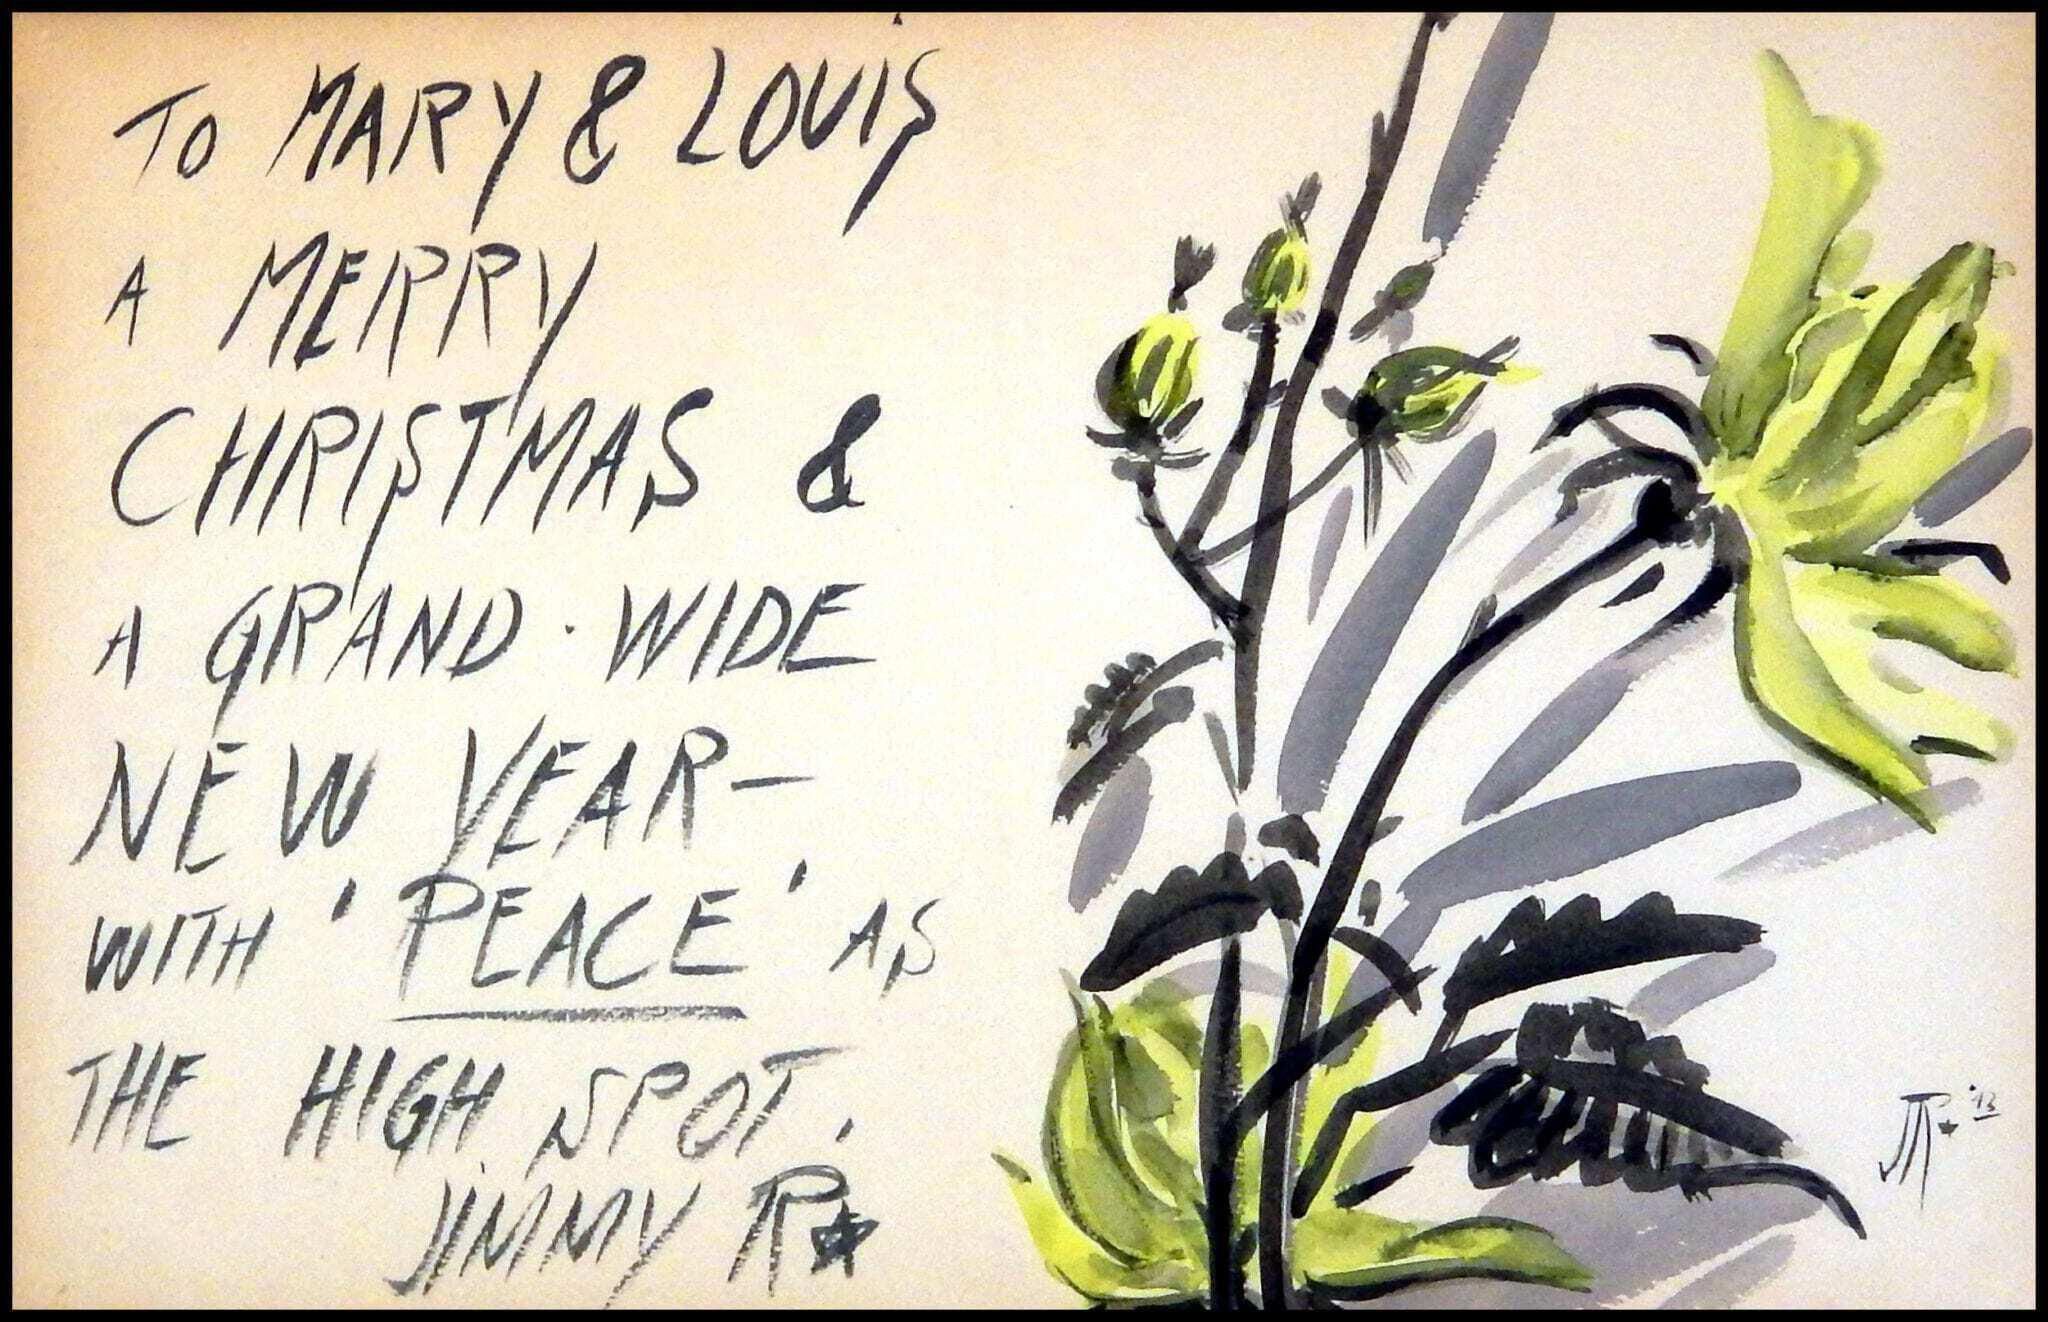 TO MARY & LOUIS
A MERRY
CHRISTMAS &
A GRAND · WIDE
NEW YEAR—
WITH 'PEACE' AS
THE HIGH SPOT.
JIMMY R★
JR★ '13